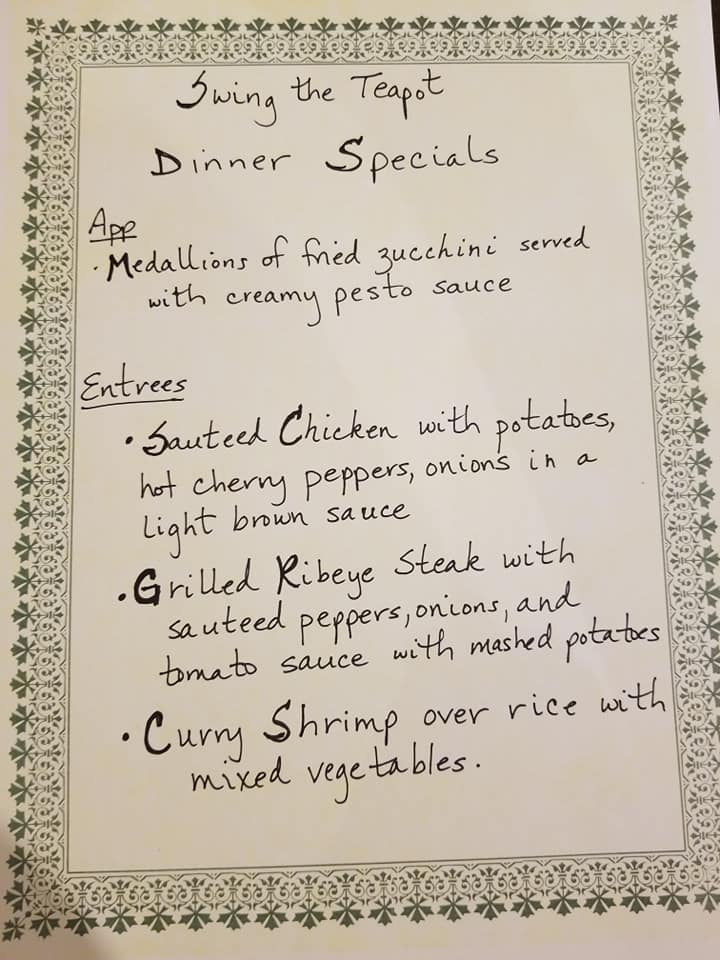 Swing the Teapot
Dinner Specials
App
· Medallions of fried zucchini served
with creamy pesto sauce
Entrees
• Sauteed Chicken with potatoes,
hot cherry peppers, onions in a
light brown sauce
• Grilled Ribeye Steak with
sauteed peppers, onions, and
tomato sauce with mashed potatoes
• Curry Shrimp over rice with
mixed vegetables.